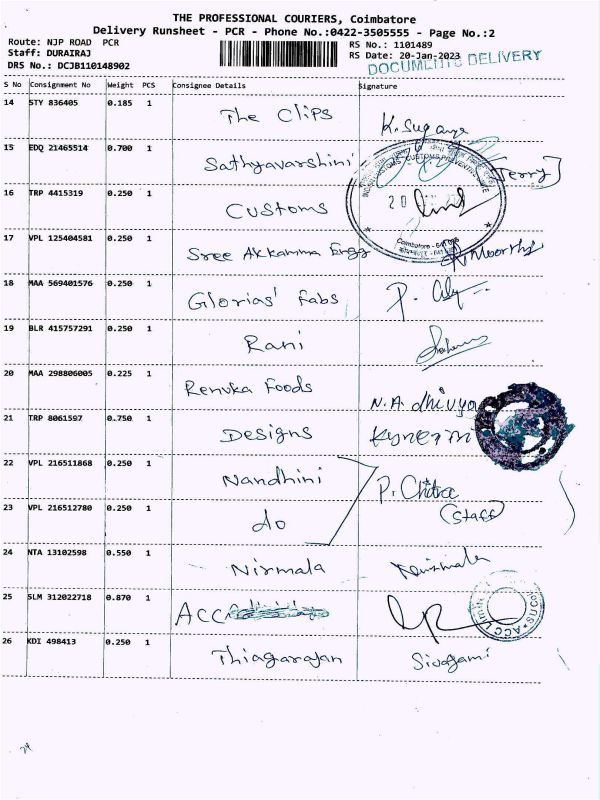 THE PROFESSIONAL COURIERS, Coimbatore
Delivery Runsheet - PCR - Phone No.:0422-3505555 - Page No.:2
Route: NJP ROAD PCR
Staff: DURAIRAJ
DRS No.: DCJB110148902
RS No.: 1101489
RS Date: 20-Jan-2023
DOCUMENTS DELIVERY
S No Consignment No Weight PCS Consignee Details Signature
14 STY 836405 0.185 1 The Clips K. Suganya
15 EDQ 21465514 0.700 1 Sathyavarshini
16 TRP 4415319 0.250 1 Customs 20
17 VPL 125404581 0.250 1 Sree Akkamma Engg Moorthy
18 MAA 569401576 0.250 1 Glorias' Fabs P.
19 BLR 415757291 0.250 1 Rani
20 MAA 298806005 0.225 1 Renuka Foods N.A. dhivya
21 TRP 8061597 0.750 1 Designs
22 VPL 216511868 0.250 1 Nandhini P. Chitra
23 VPL 216512780 0.250 1 do (Staff)
24 NTA 13102598 0.550 1 Nirmala
25 SLM 312022718 0.870 1 ACC
26 KDI 498413 0.250 1 Thiagarajan Sivagami